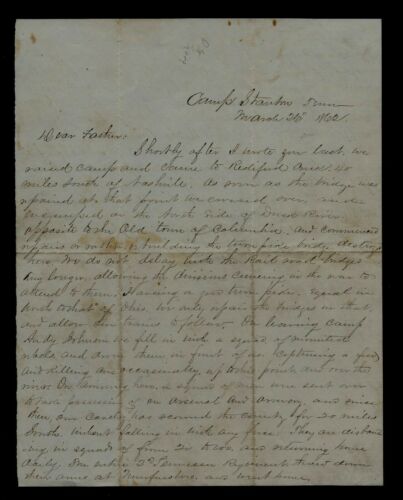 Camp Stanton Tenn
March 26th 1862.
Dear Father:
Shortly after I wrote you last, we
raised camp and came to Rediford 40
miles South of Nashville. As soon as the bridge was
repaired at that point we crossed over, and
on the North side of Duck River
opposite to the Old town of Columbia. And commenced
repairs or rather, rebuilding the turnpike bridge
here, We do not delay with the Rail road bridges
any longer, allowing the divisions coming in the rear to
attend to them. Having a fine turn pike, equal in
to that of Ohio. We only repair the bridges in that,
and allow the trains to follow. On leaving Camp
Andy Johnson we fell in with a squad of mounted
rebels, and drove them in front of us. Capturing a few
and killing an occasionally, up to this point and over the
river. On coming here, a squad of men were sent over
to take possession of an Arsenal and Armory, and since
then, our Cavalry has scoured the country for 20 miles
South without falling in with any foe. They are disband
ing in squads of from 20 to 100, and returning home
daily. The entire 3d Tennessee Regiment threw down
their arms at Murfreesboro, and went home.